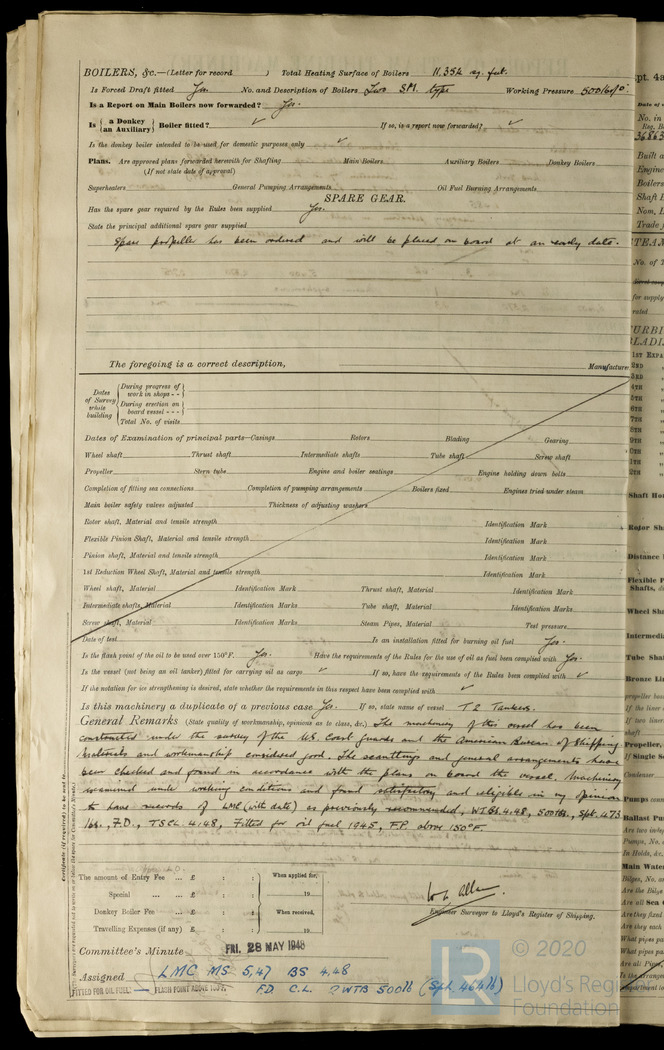 BOILERS, &c.—(Letter for record ) Total Heating Surface of Boilers 11,354 sq. feet.
Is Forced Draft fitted Yes No. and Description of Boilers Two SM. type Working Pressure 500 lbs/□"
Is a Report on Main Boilers now forwarded? Yes.
Is { a Donkey / an Auxiliary } Boiler fitted? ✓ If so, is a report now forwarded? ✓
Is the donkey boiler intended to be used for domestic purposes only ✓
Plans. Are approved plans forwarded herewith for Shafting Main Boilers Auxiliary Boilers Donkey Boilers
(If not state date of approval)
Superheaters General Pumping Arrangements Oil Fuel Burning Arrangements
SPARE GEAR.
Has the spare gear required by the Rules been supplied Yes.
State the principal additional spare gear supplied
Spare propeller has been ordered and will be placed on board at an early date.
The foregoing is a correct description,
Manufacturer
Dates of Survey while building
During progress of work in shops - -
During erection on board vessel - - -
Total No. of visits
Dates of Examination of principal parts—Casings Rotors Blading Gearing
Wheel shaft Thrust shaft Intermediate shafts Tube shaft Screw shaft
Propeller Stern tube Engine and boiler seatings Engine holding down bolts
Completion of fitting sea connections Completion of pumping arrangements Boilers fixed Engines tried under steam
Main boiler safety valves adjusted Thickness of adjusting washers
Rotor shaft, Material and tensile strength Identification Mark
Flexible Pinion Shaft, Material and tensile strength Identification Mark
Pinion shaft, Material and tensile strength Identification Mark
1st Reduction Wheel Shaft, Material and tensile strength Identification Mark
Wheel shaft, Material Identification Mark Thrust shaft, Material Identification Mark
Intermediate shafts, Material Identification Marks Tube shaft, Material Identification Marks
Screw shaft, Material Identification Marks Steam Pipes, Material Test pressure
Date of test Is an installation fitted for burning oil fuel Yes.
Is the flash point of the oil to be used over 150°F. Yes. Have the requirements of the Rules for the use of oil as fuel been complied with Yes.
Is the vessel (not being an oil tanker) fitted for carrying oil as cargo ✓ If so, have the requirements of the Rules been complied with ✓
If the notation for ice strengthening is desired, state whether the requirements in this respect have been complied with ✓
Is this machinery a duplicate of a previous case Yes. If so, state name of vessel T2 Tankers.
General Remarks (State quality of workmanship, opinions as to class, &c.) The machinery of this vessel has been
constructed under the survey of the U.S. Coast Guards and the American Bureau of Shipping
Materials and workmanship considered good. The scantlings and general arrangements have
been checked and found in accordance with the plans on board the vessel. Machinery
examined under working conditions and found satisfactory and eligible in my opinion
to have records of LMC (with date) as previously recommended, WTBs 4.48, 500lbs., Spt. 473
lbs., F.D., TSCL 4.48, Fitted for oil fuel 1945, F.P. above 150°F.
Certificate (if required) to be sent to
The amount of Entry Fee ... £ : : When applied for,
Special ... ... £ : : 19
Donkey Boiler Fee ... £ : : When received,
Travelling Expenses (if any) £ : : 19
Engineer Surveyor to Lloyd's Register of Shipping.
Committee's Minute FRI. 28 MAY 1948
Assigned LMC MS 5,47 BS 4,48
FITTED FOR OIL FUEL FLASH POINT ABOVE 150°F. F.D. C.L. 2WTB 500lb (Spt. 464lb)
LR
© 2020
Lloyd's Register
Foundation